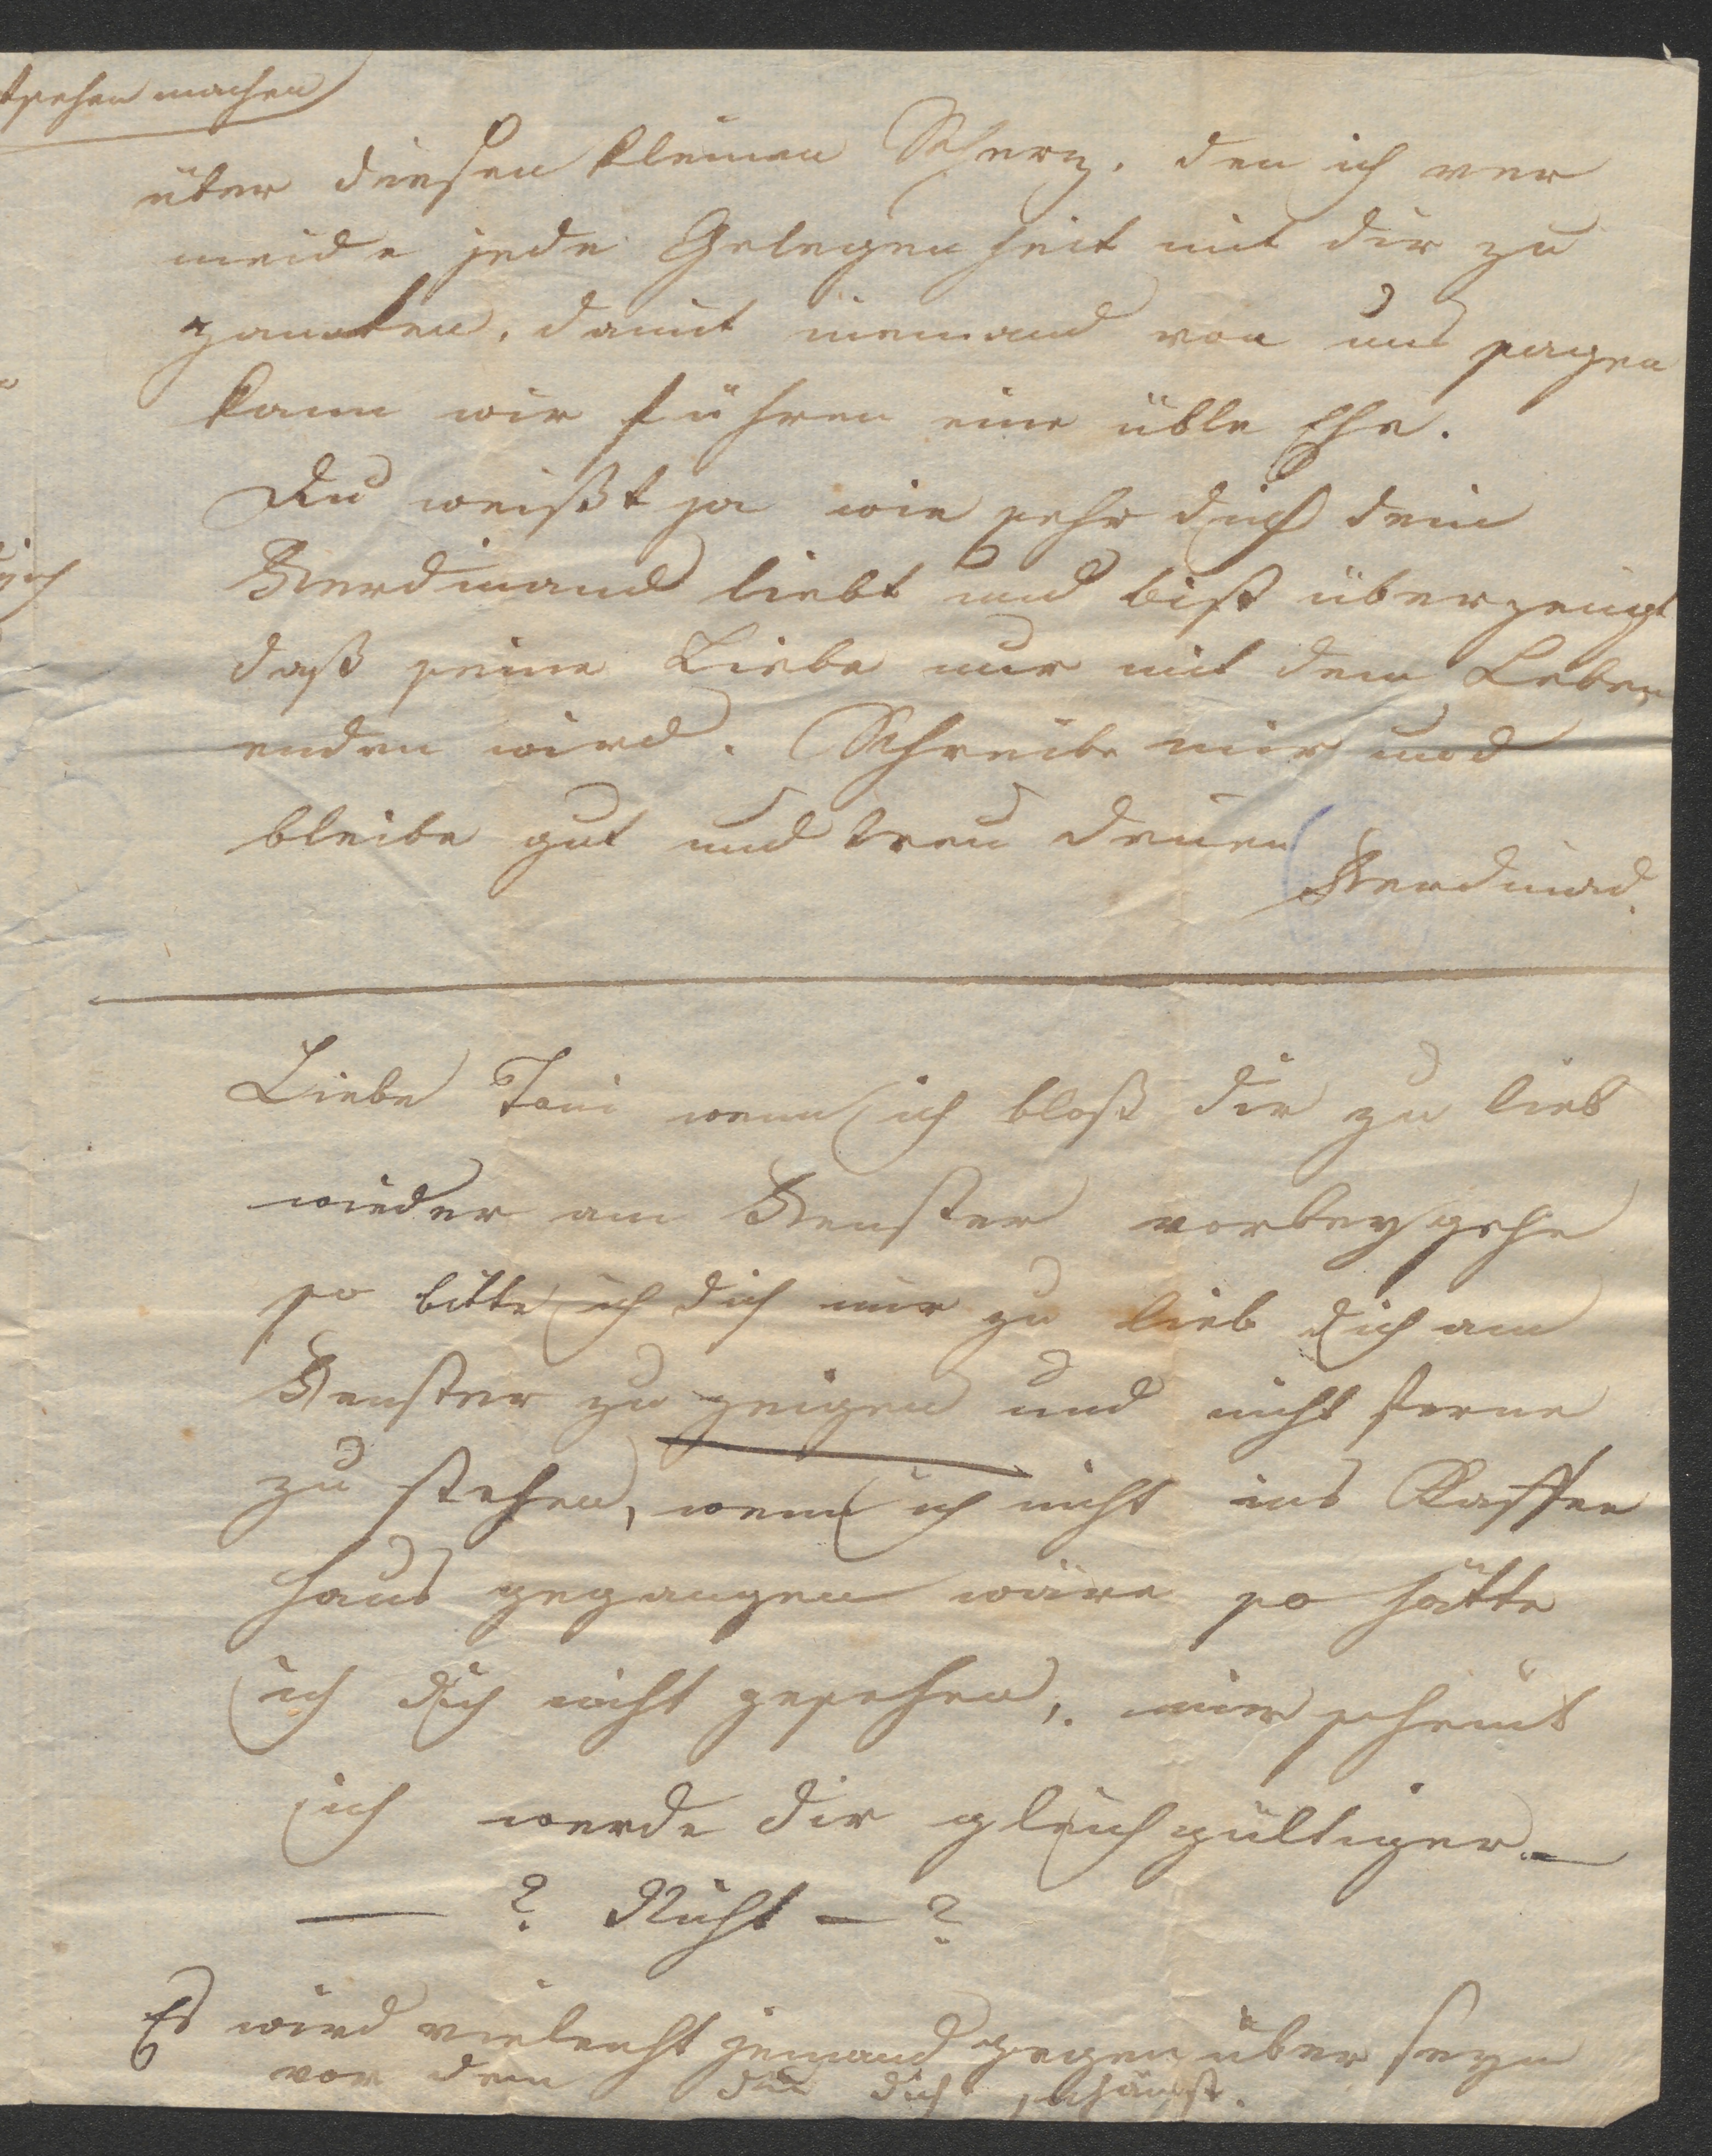 machen
über diesen kleinen Scherz. den ich ver
meide jede Gelegenheit mit dir zu
zanken, damit niemand von uns sagen
kann wir führen eine üble Ehe.
Du weißt ja wie sehr dich dein
Ferdinand liebt und bist überzeugt
daß seine Liebe nur mit dem Leben
enden wird. Schreibe mir und
bleibe gut und treu deinen
Ferdinad.
Liebe Toni wenn ich bloß dir zu lieb
wieder am Fenster vorbeygehe
so bitte ich dich mir zu lieb dich am
Fenster zu zeigen und nicht ferne
zu stehen, wenn ich nicht ins Kaffee
haus gegangen wäre so hätte
ich dich nicht gesehen, mir scheint
ich werde dir gleichgültiger. —
— ? Nicht — ?
Es wird vieleicht jemand gegenüber seyn
vor dem du dich schämst.